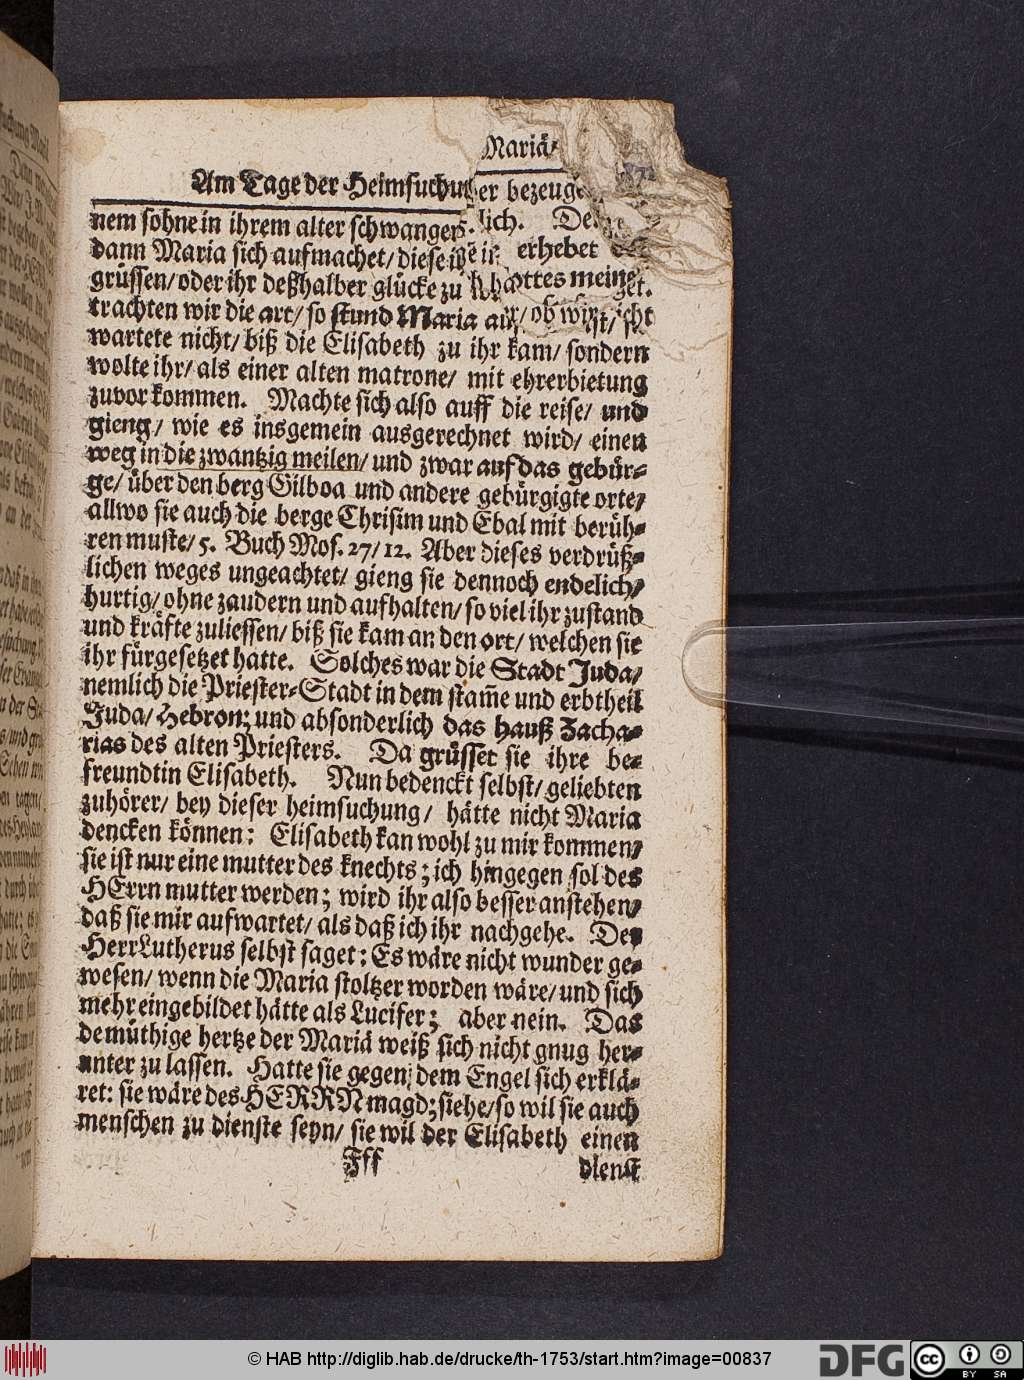 Mariä/
Am Tage der Heimsuchu
er bezeug
nem sohne in ihrem alter schwanger
lich. De
dann Maria sich aufmachet/ diese
erhebet
grüssen/ oder ihr deßhalber glücke zu
ottes meine
trachten wir die art/ so stund Maria auf/
ob wir
wartete nicht/ biß die Elisabeth zu ihr kam/ sondern
wolte ihr/ als einer alten matrone/ mit ehrerbietung
zuvor kommen. Machte sich also auff die reise/ und
gieng/ wie es insgemein ausgerechnet wird/ einen
weg in die zwantzig meilen/ und zwar auf das gebür-
ge/ über den berg Gilboa und andere gebürgigte orte/
allwo sie auch die berge Chrisim und Ebal mit berüh-
ren muste/ 5. Buch Mos. 27/ 12. Aber dieses verdrüß-
lichen weges ungeachtet/ gieng sie dennoch endelich/
hurtig/ ohne zaudern und aufhalten/ so viel ihr zustand
und kräfte zuliessen/ biß sie kam an den ort/ welchen sie
ihr fürgesetzet hatte. Solches war die Stadt Juda/
nemlich die Priester-Stadt in dem stam̃e und erbtheil
Juda/ Hebron; und absonderlich das hauß Zacha-
rias des alten Priesters. Da grüsset sie ihre be-
freundtin Elisabeth. Nun bedenckt selbst/ geliebten
zuhörer/ bey dieser heimsuchung/ hätte nicht Maria
dencken können: Elisabeth kan wohl zu mir kommen/
sie ist nur eine mutter des knechts; ich hingegen sol des
HErrn mutter werden; wird ihr also besser anstehen/
daß sie mir aufwartet/ als daß ich ihr nachgehe. Der
Herr Lutherus selbst saget: Es wäre nicht wunder ge-
wesen/ wenn die Maria stoltzer worden wäre/ und sich
mehr eingebildet hätte als Lucifer; aber nein. Das
demüthige hertze der Mariä weiß sich nicht gnug her-
unter zu lassen. Hatte sie gegen dem Engel sich erklä-
ret: sie wäre des HERRN magd; siehe/ so wil sie auch
menschen zu dienste seyn/ sie wil der Elisabeth einen
Fff
dienst
© HAB http://diglib.hab.de/drucke/th-1753/start.htm?image=00837
DFG
cc BY SA